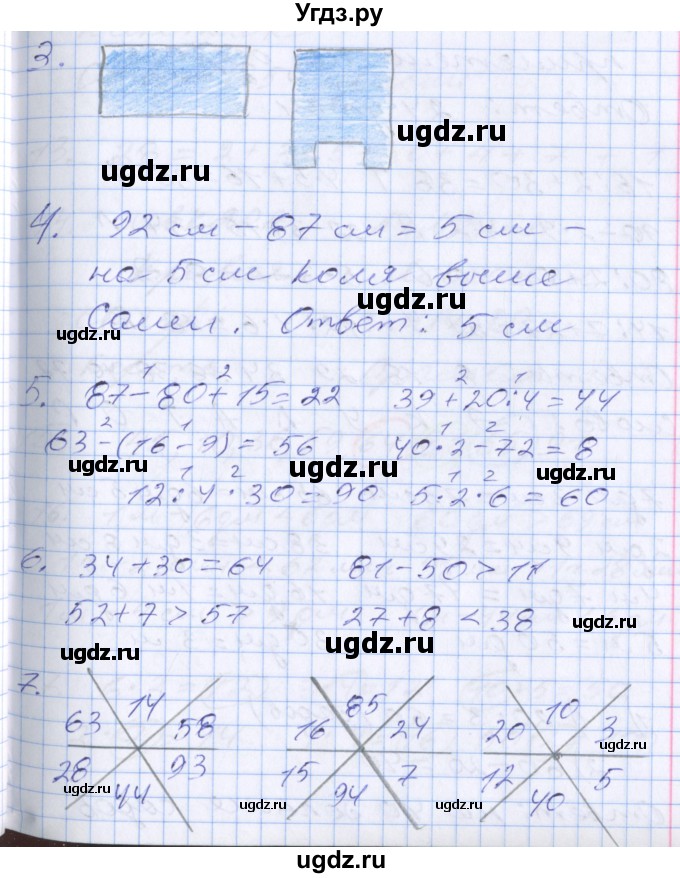 Угдз.ру
3.
ugdz.ru
ugdz.ru
4. 92 см – 87 см = 5 см –
на 5 см Коля выше
ugdz.ru
ugdz.ru
Саши. Ответ: 5 см
1 2 2 1
5. 87–80+15=22 39+20:4=44
2 1 1 2
63–(16–9)= 56 40·2–72=8
ugdz.ru ugdz.ru
1 2 1 2
12:4·30=90 5·2·6=60
6. 34+30=64 81–50>11
52+7>57 27+8<38
ugdz.ru
ugdz.ru ugdz.ru
7.
14 85 10
63 58 16 24 20 3
ugdz.ru
28 93 15 7 12 5
44 94 40
ugdz.ru ugdz.ru ugdz.ru ugdz.ru
ugdz.ru